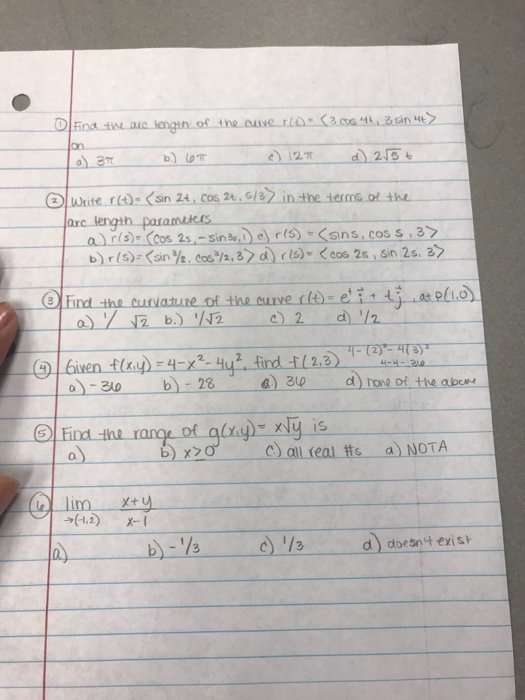 ① Find the arc length of the curve r(t) = <3 cos 4t, 3 sin 4t>
on
a) 3π b) 6π c) 12π d) 2√5 t
② Write r(t) = <sin 2t, cos 2t, 5/3> in the terms of the
arc length parameters
a) r(s) = <cos 2s, -sin 3s, 1> c) r(s) = <sin s, cos s, 3>
b) r(s) = <sin s/2, cos s/2, 3> d) r(s) = <cos 2s, sin 2s, 3>
③ Find the curvature of the curve r(t) = e^t i + t j, at P(1,0)
a) 1/ √2 b.) 1/√2 c) 2 d) 1/2
④ Given f(x,y) = 4-x²-4y², find f(2,3) 4-(2)²-4(3)²
4-4-36
a) -36 b) -28 c) 36 d) none of the above
⑤ Find the range of g(x,y) = x√y is
a) b) x>0 c.) all real #s d) NOTA
⑥ lim x+y
→(-1,2) x-1
a) b) -1/3 c) 1/3 d) doesn't exist